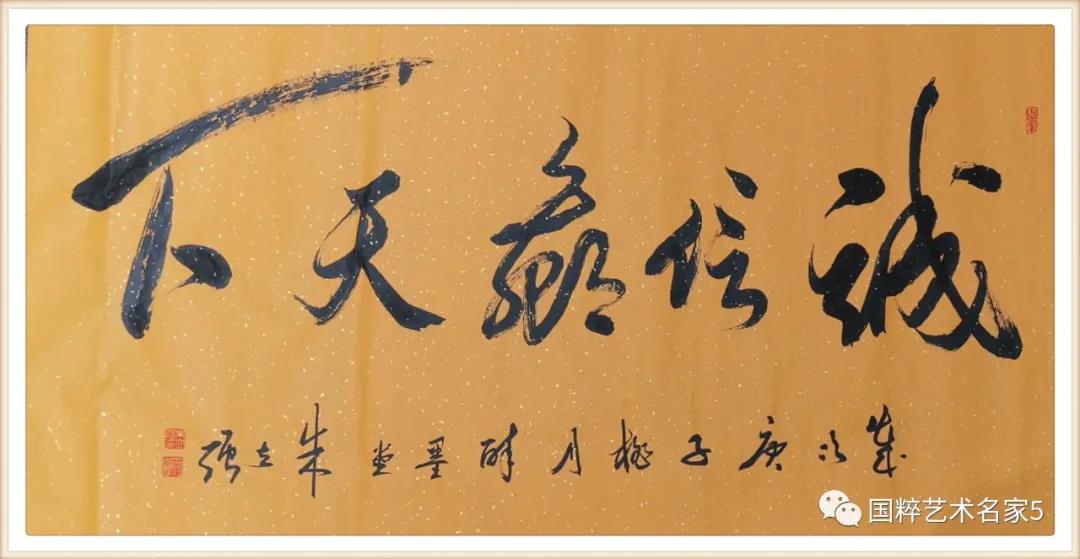 誠信贏天下
歲次庚子桃月醉墨堂朱立强
国粹艺术名家5